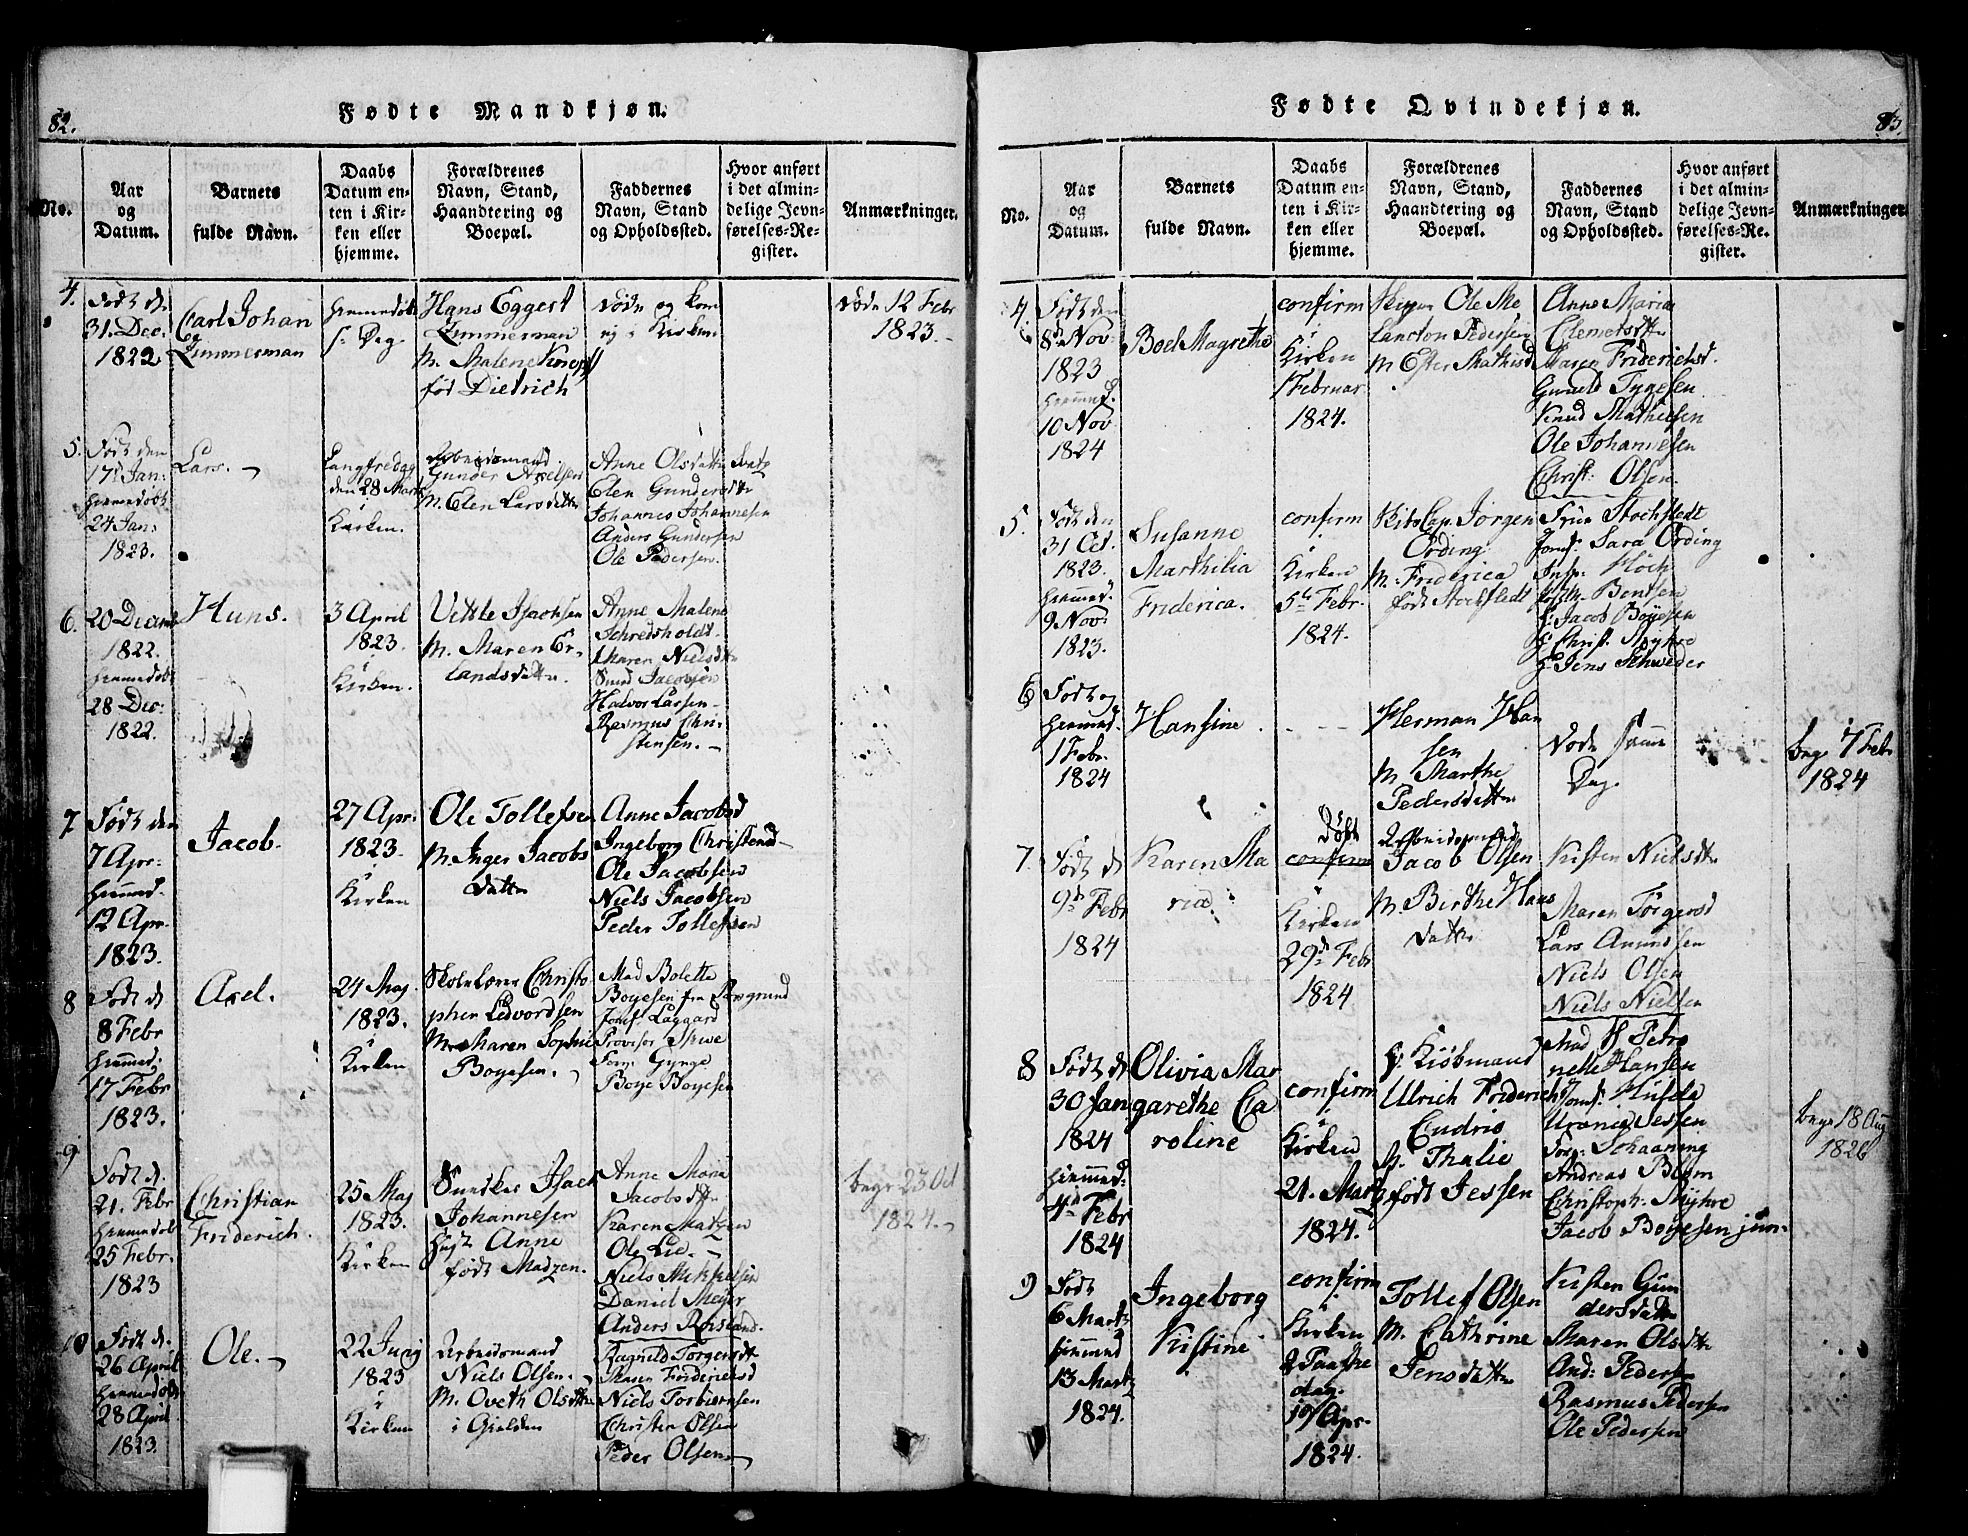 82.
Fødte Mandkjøn.
No.
Aar
og
Datum.
Barnets
fulde Navn.
Daabs
Datum en-
ten i Kir-
ken eller
hjemme.
Forældrenes
Navn, Stand,
Haandtering og
Boepæl.
Faddernes
Navn, Stand
og Opholdssted.
Hvor anført
i det almin-
delige Jevn-
førelses-Re-
gister.
Anmærkninger.
4.
Født d.
31. Dec.
1822
Carl Johan
Zimmerman
Hans Eggert
Zimmerman
M. Malene
fød Dietrich
Døde og kom
ej i Kirken
Døde 12 Febr
1823.
5.
Født den
17d Jan:
hiemmedøbt
24 Jan:
1823.
Lars.
Langfredag
den 28 Marts
i
Kirken.
Arbeidsmand
Gunder Axelsen
M. Elen Larsdattr
Anne Olsdattr
Elen Gundersdttr
Johannes Johannesen
Anders Gundersen
Ole Pedersen.
6.
20 Decemb
1822.
hiemmedøbt
28 Dec:
1822.
Hans.
3 April
1823.
i
Kirken.
Vettle Isachsen
M. Maren Er-
landsdattr.
Anne Malene
Maren Nielsdttr
Jacobsen
Halvor Larsen
Rasmus Chri-
stensen.
7
Født den
7 Apr:
hiemmed.
12 Apr.
1823.
Jacob.
27 Apr:
1823.
i
Kirken
Ole Tollefsen
M. Inger Jacobs
dattr
Anne Jacobsd
Ingeborg Christensd
Ole Jacobsen
Niels Jacobsen
Peder Tollefsen
8
Født d
8 Febr
hiemmed:
17 Febr
1823.
Axel.
24 Maj
1823.
i
Kirken
Skolelærer Christo
pher Edvordsen
M. Maren Sophie
Boyesen.
Mad Bolette
Boyesen fra Porsgrund
Jomf: Laggard
Provisor
Boye Boyesen
9
Født d.
21. Febr
hiemmedøbt
25 Febr.
1823
Christian
Friderich.
25 Maj
1823.
i
Kirken
Isach
Johannesen
Anne
født Madzen.
Anne Maria
Jacobsdttr
Karen Madzen
Ole Lie.
Niels Mikkelsen
Daniel Meyer
Anders
begr 23 Oct
1824.
10
Født d.
26 April
hiemmedøbt
28 April
1823
Ole.
22 Junij
1823
i
Kirken
Arbeidsmand
Niels Olsen.
M. Oveth Olsdttr
i Gjelden
Ragnild Torgersdtt
Maren Friderichsd
Niels Torbiørnsen
Christen Olsen
Peder Olsen.
83.
Fødte Qvindekjøn.
No.
Aar
og
Datum.
Barnets
fulde Navn.
Daabs
Datum en-
ten i Kir-
ken eller
hjemme.
Forældrenes
Navn, Stand,
Haandtering og
Boepæl.
Faddernes
Navn, Stand
og Opholdssted.
Hvor anført
i det almin-
delige Jevn-
førelses-Re-
gister.
Anmærkninger
4.
Født den
8d Nov
1823
hiemmed.
10 Nov
1824
Boel Magrethe
confirm
i
Kirken
1 Februar
1824.
Skipper Ole Me
lancton Pedersen
M Ester
Anne Maria
Clemetsdttr
Maren Friderichsd.
Gunild Tygesen
Knud Mathiesen
Ole Johannesen
Christ: Olsen.
5.
Født den
31 Oct.
1823.
hiemmed.
9 Nov:
1823.
Susanne
Marthilia
Friderica.
confirm
i
Kirken
5te Febr.
1824.
Skibs Cap. Jørgen
Ording
M: Friderica
født Stochfledt
Frue Stochfledt
Jomf: Sara Ording
Bentsen
H: Jacob Boyesen
Hr Christ: Myhre
Hr Jens Schweder
6
Født og
hiemmed.
1 Febr.
1824
Hansine
Herman Han
sen
M. Marthe
Pedersdattr
Døde samme
Dag.
begr 7 Febr
1824
7.
Født d
9d Febr
1824
Karen Ma
ria.
Døbt
confirm
i
Kirken
29d Febr
1824
Arbeidsmand
Jacob Olsen
M. Birthe Hans
dattr
Kirsten Nielsdttr
Maren Torgersd
Lars Amundsen
Niels Olsen
Niels Nielsen
8
Født d
30 Jan
1824
hiemmed:
4d Febr
1824
Olivia Mar
garethe Ca
roline
confirm
i
Kirken
21. Marts
1824.
Hr. Kiøbmand
Ulrich Friderich
Cudrio
M. Thalie
født Jessen
Mad H Petro
nelle Hansen
Jomf:
Urania Jessen
Schaaning
Andreas Blom
Christoph: Myhre
Jacob Boyesen jun
begr 18 Aug
1826
9
Født
6 Marts
hiemmed
13 Marts
1824.
Ingeborg
Kirstine
confirm
i
Kirken
2 Paaske
dag.
19/Apr.
1824.
Tollef Olsen
M. Cathrine
Jensdattr
Kirsten Gun
dersdattr
Maren Olsdttr
And: Pedersen
Rasmus Pedersen
Ole Pedersen